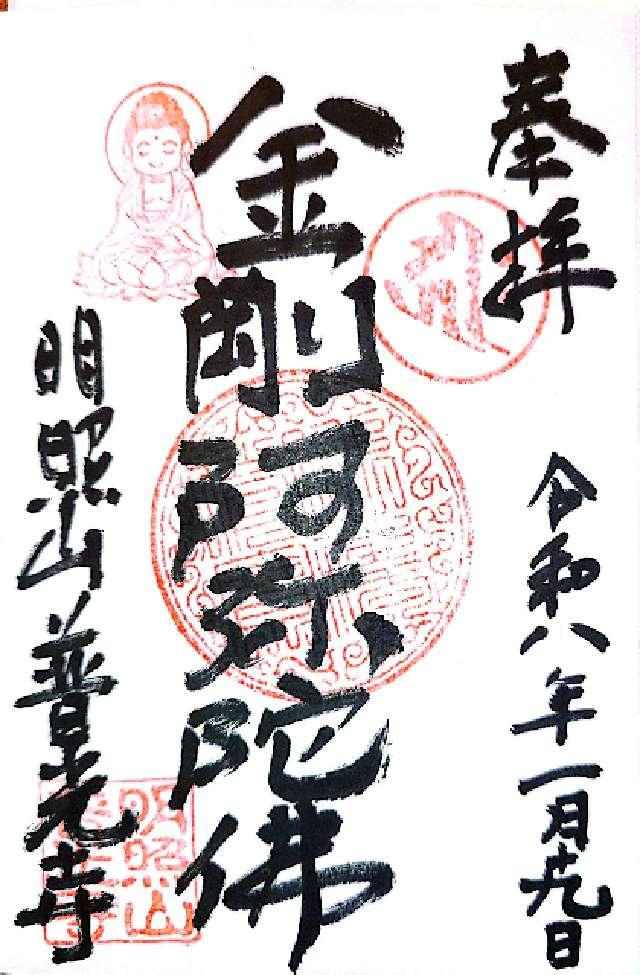 奉拝
令和八年一月十九日
金剛阿弥陀佛
明照山普光寺
明照山